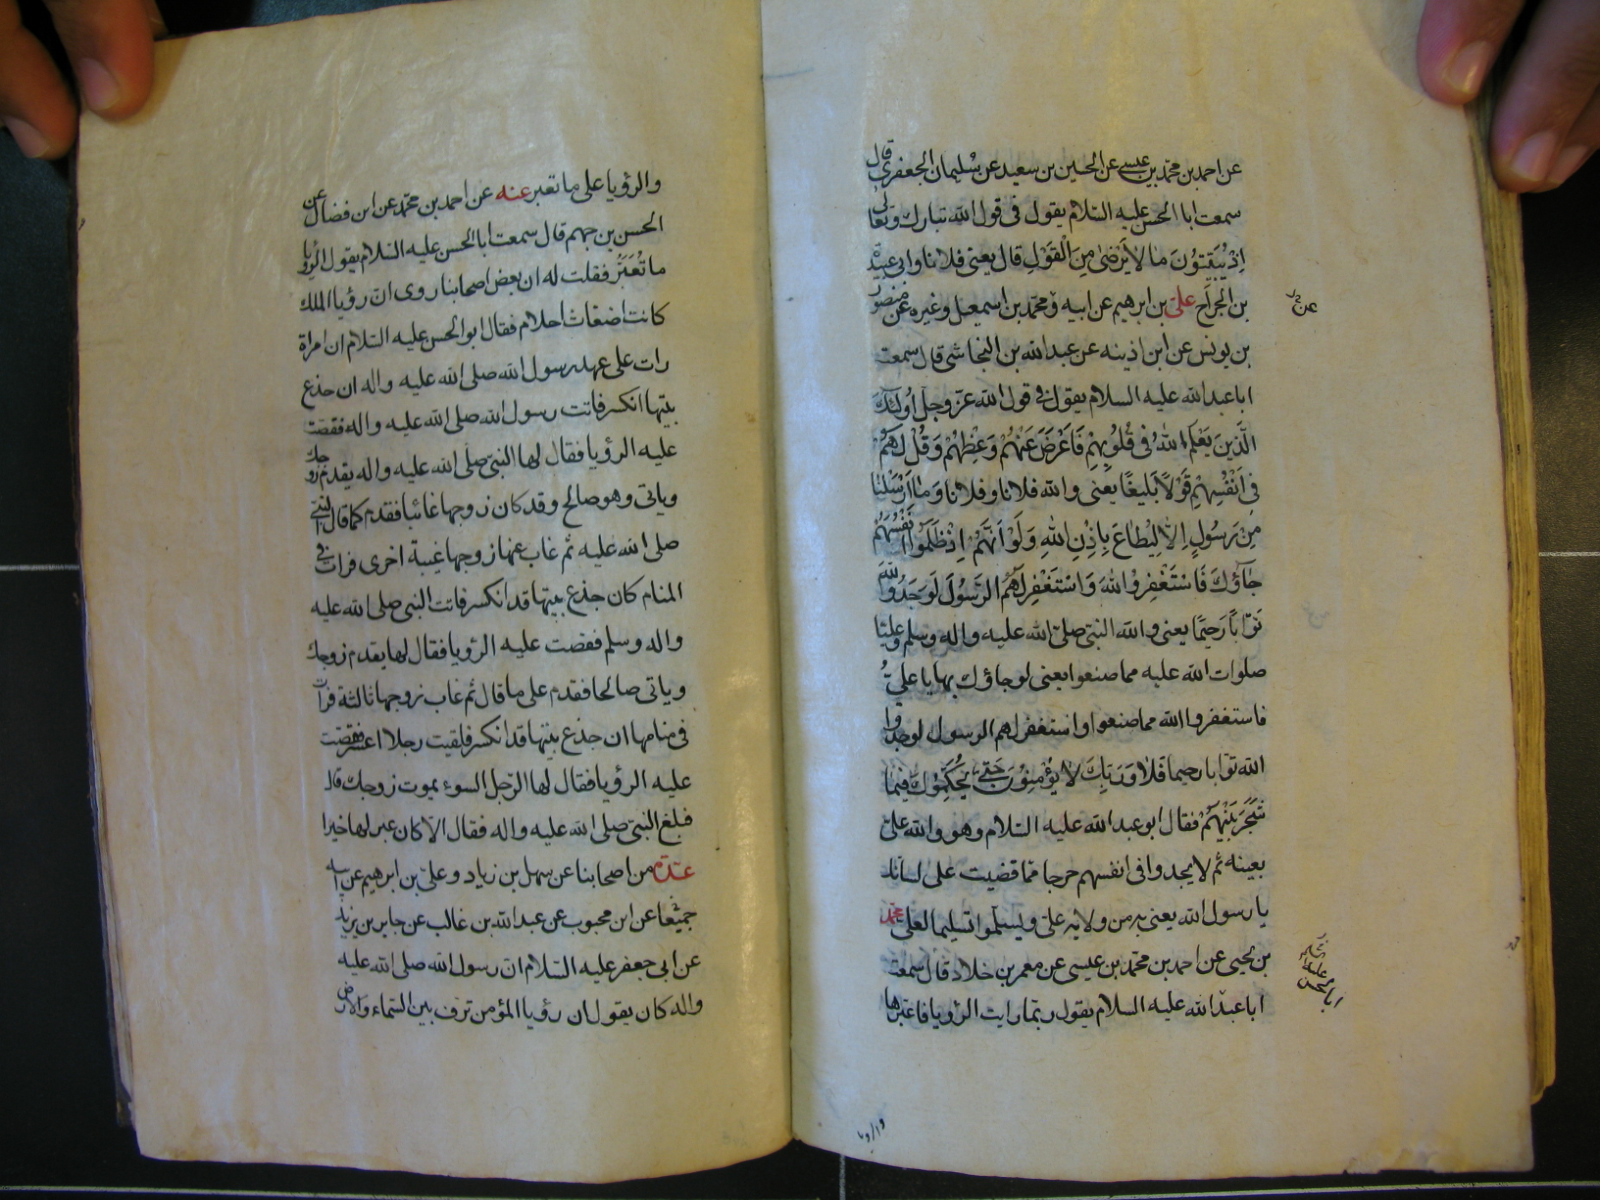 عن احمد بن محمد بن عيسى عن الحسين بن سعيد عن سليمان الجعفرى قال
سمعت ابا الحسن عليه السلام يقول فى قول الله تبارك وتعالى
اِذْ يُبَيِّتُوُنَ مَا لا يَرْضىٰ مِنَ الْقَوْلِ قال يعنى فلانا وابى عبيدة
بن الجراح على بن ابرهيم عن ابيه و محمد بن اسمعيل وغيره عن منصور
بن يونس عن ابن اذينه عن عبد الله بن النجاشى قال سمعت
ابا عبد الله عليه السلام يقول فى قول الله عز وجل اُولئِكَ
الَّذينَ يَعْلَمُ اللهُ فى قُلُوبِهِمْ فَاَعْرِضْ عَنْهُمْ وَعِظْهُمْ وَقُلْ لَهُمْ
فى اَنْفُسِهِمْ قَوْلاً بَليغًا يعنى والله فلانا وفلانا وَمَا اَرْسَلْنا
مِنْ رَسُولٍ اِلاّ لِيُطاعَ بِاِذْنِ اللهِ وَلَوْ اَنَّهُمْ اِذْ ظَلَمُوا اَنْفُسَهُمْ
جَاؤُكَ فَاسْتَغْفَرُوا اللهَ وَاسْتَغْفَرَ لَهُمُ الرَّسُولُ لَوَجَدُوا اللهَ
تَوّابًا رَحيمًا يعنى والله النبى صلى الله عليه واله وسلم وعليا
صلوات الله عليه مما صنعوا يعنى لو جاؤك بها يا على
فاستغفروا الله مما صنعوا واستغفر لهم الرسول لوجدوا
الله توابا رحيما فَلا وَرَبِّكَ لا يُؤْمِنُونَ حَتّى يُحَكِّمُوكَ فيمَا
شَجَرَ بَيْنَهُمْ فقال ابو عبد الله عليه السلام وهو والله على
بعينه ثم لا يجدوا فى انفسهم حرجا مما قضيت على لسانك
يا رسول الله يعنى به من ولاية على ويسلموا تسليما لعلى محمد
بن يحيى عن احمد بن محمد بن عيسى عن معمر بن خلاد قال سمعت
ابا عبد الله عليه السلام يقول ربما رايت الرؤيا فاعبرها
عن
ابا الحسن
والرؤيا على ما تعبر عنه عن احمد بن محمد عن ابن فضال عن
الحسن بن جهم قال سمعت ابا الحسن عليه السلام يقول الرؤيا
ما تُعَبَّرُ فقلت له ان بعض اصحابنا روى ان رؤيا الملك
كانت اضغاث احلام فقال ابو الحسن عليه السلام ان امراة
رات على عهد رسول الله صلى الله عليه واله ان جذع
بيتها انكسر فاتت رسول الله صلى الله عليه واله فقصت
عليه الرؤيا فقال لها النبى صلى الله عليه واله يقدم زوجك
وياتى وهو صالح وقد كان زوجها غائبا فقدم كما قال النبى
صلى الله عليه ثم غاب عنها زوجها غيبة اخرى فرات فى
المنام كان جذع بيتها قد انكسر فاتت النبى صلى الله عليه
واله وسلم فقصت عليه الرؤيا فقال لها يقدم زوجك
وياتى صالحا فقدم على ما قال ثم غاب زوجها ثالثة فرات
فى منامها ان جذع بيتها قد انكسر فلقيت رجلا اعسر فقصت
عليه الرؤيا فقال لها الرجل السوء يموت زوجك قال
فبلغ النبى صلى الله عليه واله فقال الا كان عبر لها خيرا
عدة من اصحابنا عن سهل بن زياد وعلى بن ابرهيم عن ابيه
جميعا عن ابن محبوب عن عبد الله بن غالب عن جابر بن يزيد
عن ابى جعفر عليه السلام ان رسول الله صلى الله عليه
واله كان يقول ان رؤيا المؤمن ترف بين السماء والارض